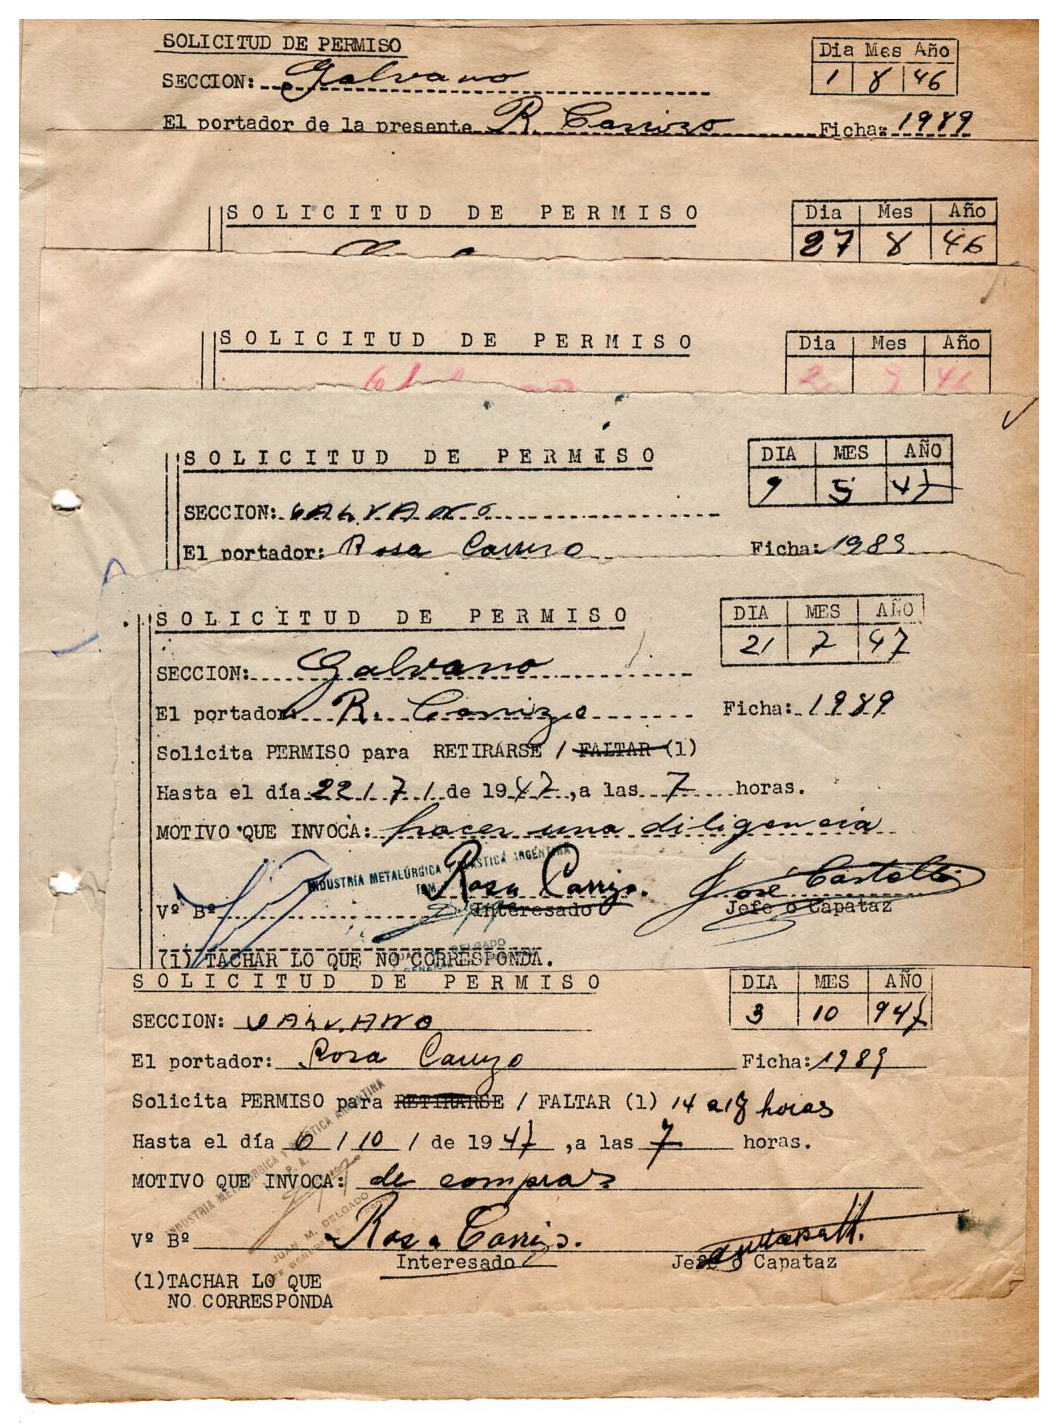 SOLICITUD DE PERMISO
Dia Mes Año
SECCION: Galvano
1 8 46
El portador de la presente R. Carrizo Ficha: 1989
SOLICITUD DE PERMISO
Dia Mes Año
27 8 46
SOLICITUD DE PERMISO
Dia Mes Año
2 9 46
SOLICITUD DE PERMISO
DIA MES AÑO
9 5 47
SECCION: GALVANO
El portador: Rosa Carrizo Ficha: 1989
SOLICITUD DE PERMISO
DIA MES AÑO
21 7 47
SECCION: Galvano
El portador: R. Carrizo Ficha: 1989
Solicita PERMISO para RETIRARSE / FALTAR (1)
Hasta el día 22 / 7 / de 1947, a las 7 horas.
MOTIVO QUE INVOCA: hacer una diligencia
INDUSTRIA METALÚRGICA Y PLÁSTICA ARGENTINA
Rosa Carrizo. José Castelli
Vº Bº Interesado Jefe o Capataz
DELGADO
(1) TACHAR LO QUE NO CORRESPONDA.
SOLICITUD DE PERMISO
DIA MES AÑO
3 10 947
SECCION: GALVANO
El portador: Rosa Carrizo Ficha: 1989
Solicita PERMISO para RETIRARSE / FALTAR (1) 14 a 18 horas
Hasta el día 6 / 10 / de 1947, a las 7 horas.
MOTIVO QUE INVOCA: de compras
INDUSTRIA METALÚRGICA Y PLÁSTICA ARGENTINA
S. A.
JUAN M. DELGADO
Vº Bº Rosa Carrizo.
Interesado Jefe o Capataz
(1) TACHAR LO QUE
NO CORRESPONDA